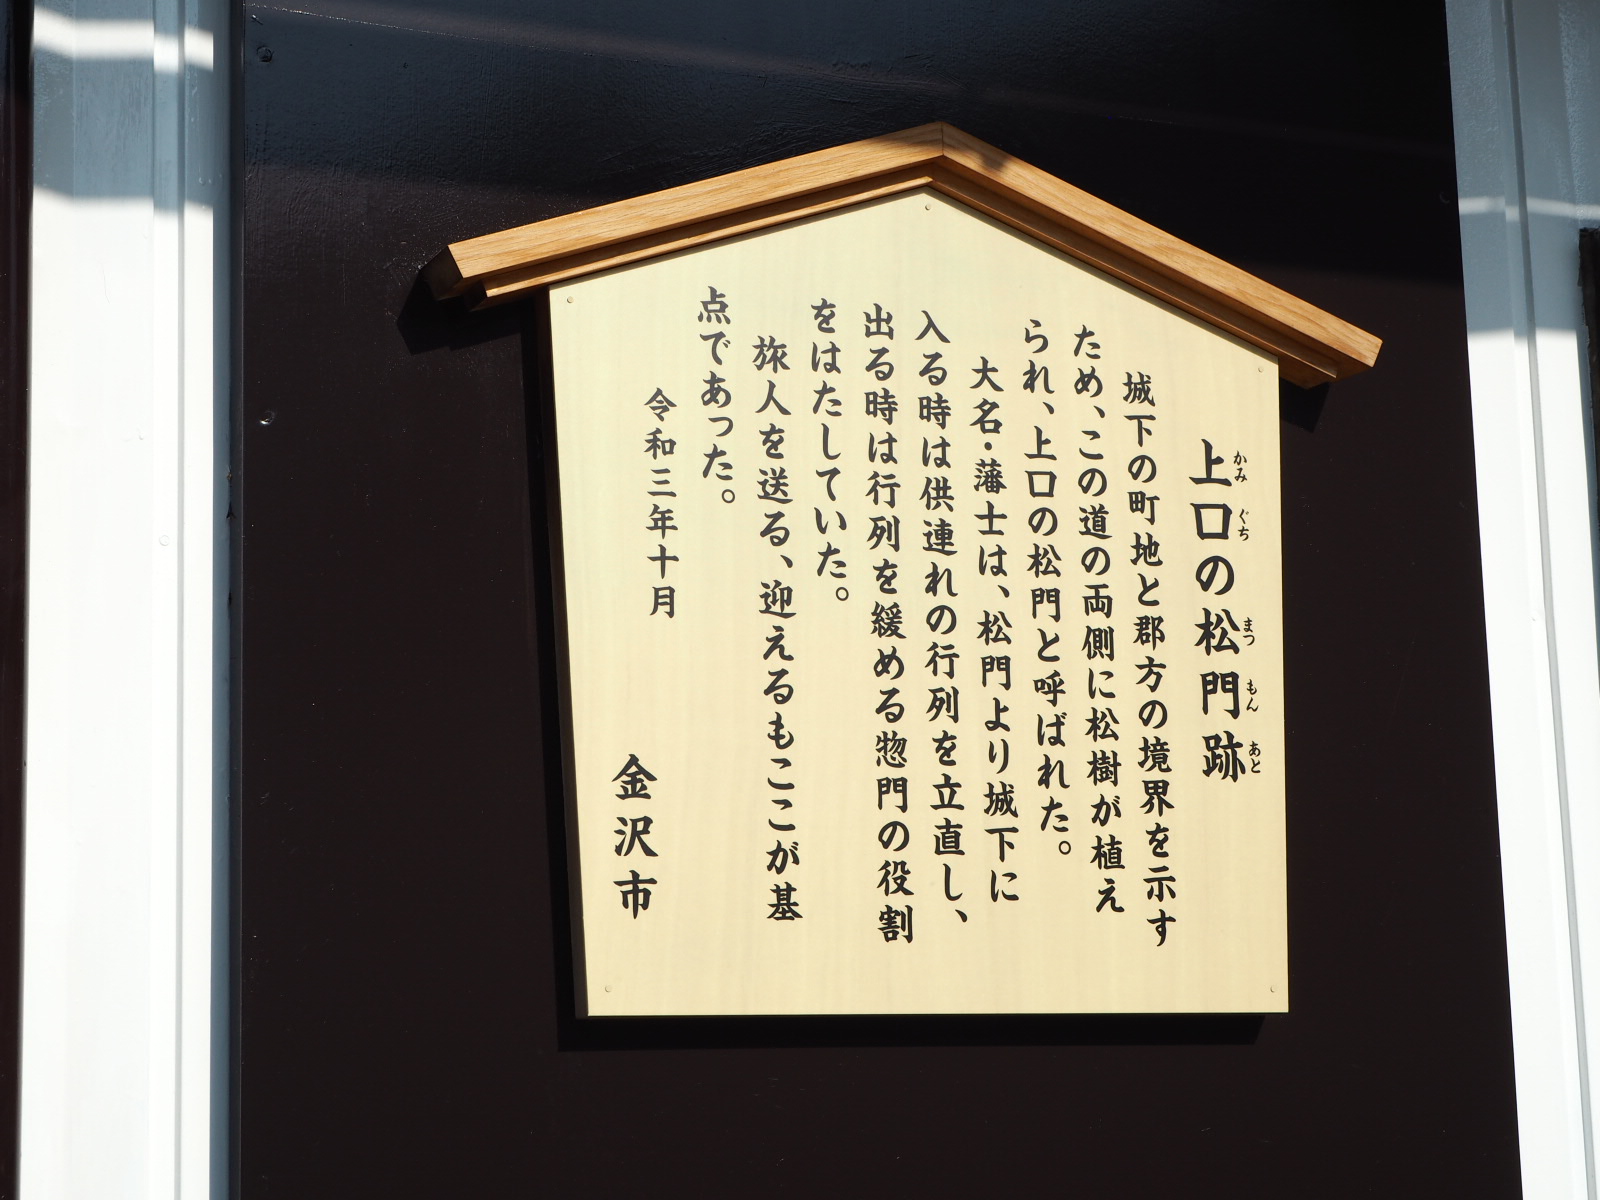 上口の松門跡
かみ ぐち まつ もん あと
城下の町地と郡方の境界を示す
ため、この道の両側に松樹が植え
られ、上口の松門と呼ばれた。
大名・藩士は、松門より城下に
入る時は供連れの行列を立直し、
出る時は行列を緩める惣門の役割
をはたしていた。
旅人を送る、迎えるもここが基
点であった。
令和三年十月
金沢市